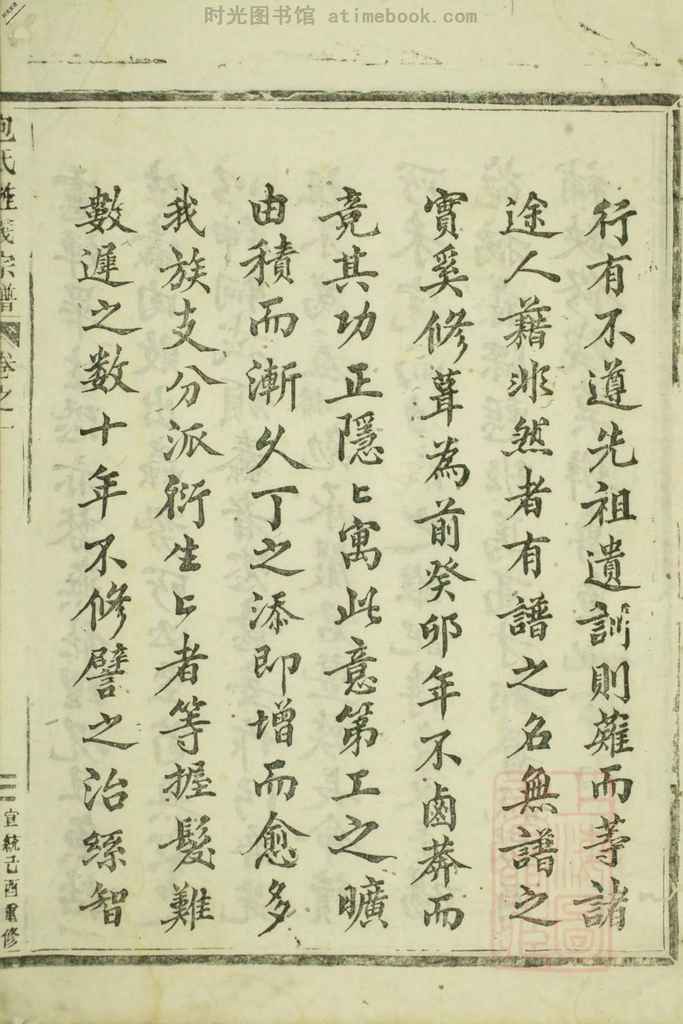 时光图书馆 atimebook.com
行有不遵先祖遺訓則薙而等諸
途人藉非然者有譜之名無譜之
實奚修葺為前癸卯年不鹵莽而
竟其功正隱〻寓此意第工之曠
由積而漸久丁之添即增而愈多
我族支分派衍生〻者等握髮難
數遲之数十年不修譬之治絲智
包氏宗譜
卷之一
三
宣統己酉重修